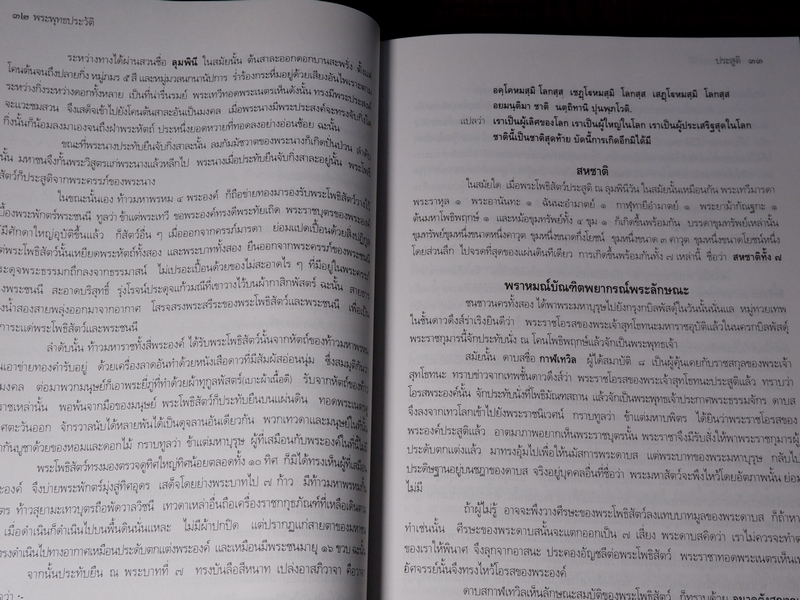 ๓๒ พระพุทธประวัติ
ระหว่างทางได้ผ่านสวนชื่อ ลุมพินี ในสมัยนั้น ต้นสาละออกดอกบานสะพรั่ง ตั้งแต่
โคนต้นจนถึงปลายกิ่ง หมู่ภมร ๕ สี และหมู่วิหคนกนานัปการ ร่ำร้องกระหึ่มอยู่ด้วยเสียงอันไพเราะตาม
ระหว่างกิ่งระหว่างดอกทั้งหลาย เป็นที่น่ารื่นรมย์ พระเทวีทอดพระเนตรเห็นดังนั้น ทรงมีพระประสงค์
จะแวะชมสวน จึงเสด็จเข้าไปยังโคนต้นสาละอันเป็นมงคล เมื่อพระนางมีพระประสงค์จะทรงจับกิ่งใด
กิ่งนั้นก็น้อมลงมาเองจนถึงฝ่าพระหัตถ์ ประหนึ่งยอดหวายที่ทอดลงอย่างอ่อนช้อย ฉะนั้น
ขณะที่พระนางประทับยืนจับกิ่งสาละนั้น ลมกัมมัชวาตของพระนางก็เกิดปั่นป่วน ลำดับ
นั้น มหาชนจึงกั้นพระวิสูตรแก่พระนางแล้วหลีกไป พระนางเมื่อประทับยืนจับกิ่งสาละอยู่นั้น พระโพธิ
สัตว์ก็ประสูติจากพระครรภ์ของพระนาง
ในขณะนั้นเอง ท้าวมหาพรหม ๔ พระองค์ ก็ถือข่ายทองมารองรับพระโพธิสัตว์วางไว้
เบื้องพระพักตร์พระชนนี ทูลว่า ข้าแต่พระเทวี ขอพระองค์ทรงดีพระทัยเถิด พระราชบุตรของพระองค์
มีศักดาใหญ่อุบัติขึ้นแล้ว ก็สัตว์อื่น ๆ เมื่อออกจากครรภ์มารดา ย่อมแปดเปื้อนด้วยสิ่งปฏิกูล
แต่พระโพธิสัตว์นั้นเหยียดพระหัตถ์ทั้งสอง และพระบาททั้งสอง ยืนออกจากพระครรภ์ของพระชนนี
ประดุจพระธรรมกถึกลงจากธรรมาสน์ ไม่เปรอะเปื้อนด้วยของไม่สะอาดใด ๆ ที่มีอยู่ในพระครรภ์
พระชนนี สะอาดบริสุทธิ์ รุ่งโรจน์ประดุจแก้วมณีที่เขาวางไว้บนผ้ากาสิกพัสตร์ ฉะนั้น สายธาร
แห่งน้ำสองสายพลุ่งออกมาจากอากาศ โสรจสรงพระสรีระของพระโพธิสัตว์และพระชนนี เพื่อเป็น
การะแด่พระโพธิสัตว์และพระชนนี
ลำดับนั้น ท้าวมหาพรหมทั้งสี่พระองค์ ได้รับพระโพธิสัตว์นั้นจากหัตถ์ของท้าวมหาพรหม
เอาข่ายทองคำรับอยู่ ด้วยเครื่องลาดอันทำด้วยหนังเสือดาวที่มีสัมผัสอ่อนนุ่ม ซึ่งสมมุติกันว่า
มงคล ต่อมาพวกมนุษย์ก็เอาพระยี่ภู่ที่ทำด้วยผ้าทุกูลพัสตร์(เบาะผ้าเนื้อดี) รับจากหัตถ์ของท้าว
ราชเหล่านั้น พอพ้นจากมือของมนุษย์ พระโพธิสัตว์ก็ประทับยืนบนแผ่นดิน ทอดพระเนตรดู
ทิศตะวันออก จักรวาลนับได้หลายพันได้เป็นดุจลานอันเดียวกัน พวกเทวดาและมนุษย์ในที่นั้น
กันบูชาด้วยของหอมและดอกไม้ กราบทูลว่า ข้าแต่มหาบุรุษ ผู้ที่เสมอกับพระองค์ในที่นี้ไม่มี
พระโพธิสัตว์ทรงมองตรวจดูทิศใหญ่ทิศน้อยตลอดทั้ง ๑๐ ทิศ ก็มิได้ทรงเห็นผู้ที่เสมอ
ะองค์ จึงบ่ายพระพักตร์มุ่งสู่ทิศอุดร เสด็จโดยย่างพระบาทไป ๗ ก้าว มีท้าวมหาพรหมกั้น
ตร ท้าวสุยามะเทวบุตรถือพัดวาลวิชนี เทวดาเหล่าอื่นถือเครื่องราชกกุธภัณฑ์ที่เหลือเดินตาม
เมื่อดำเนินก็ดำเนินไปบนพื้นดินนั่นแหละ ไม่มีผ้าปกปิด แต่ปรากฏแก่สายตาของมหาชน
รงดำเนินไปทางอากาศเหมือนประดับตกแต่งพระองค์ และเหมือนมีพระชนมายุ ๑๖ ขวบ ฉะนั้น
จากนั้นประทับยืน ณ พระบาทที่ ๗ ทรงบันลือสีหนาท เปล่งอาสภิวาจา คือวาจา
ว่า :-
ประสูติ ๓๓
อคฺโคหมสฺมิ โลกสฺส เชฏฺโฐหมสฺมิ โลกสฺส เสฏฺโฐหมสฺมิ โลกสฺส
อยมนฺติมา ชาติ นตฺถิทานิ ปุนพฺภโวติ.
แปลว่า เราเป็นผู้เลิศของโลก เราเป็นผู้ใหญ่ในโลก เราเป็นผู้ประเสริฐสุดในโลก
ชาตินี้เป็นชาติสุดท้าย บัดนี้การเกิดอีกมิได้มี
สหชาติ
ในสมัยใด เมื่อพระโพธิสัตว์ประสูติ ณ ลุมพินีวัน ในสมัยนั้นเหมือนกัน พระเทวีมารดา
พระราหุล ๑ พระอานันทะ ๑ ฉันนะอำมาตย์ ๑ กาฬุทายีอำมาตย์ ๑ พระยาม้ากัณฐกะ ๑
ต้นมหาโพธิพฤกษ์ ๑ และหม้อขุมทรัพย์ทั้ง ๔ ขุม ๑ ก็เกิดขึ้นพร้อมกัน บรรดาขุมทรัพย์เหล่านั้น
ขุมทรัพย์ขุมหนึ่งขนาดหนึ่งคาวุต ขุมหนึ่งขนาดกึ่งโยชน์ ขุมหนึ่งขนาด ๓ คาวุต ขุมหนึ่งขนาดโยชน์หนึ่ง
โดยส่วนลึก ไปจรดที่สุดของแผ่นดินทีเดียว การเกิดขึ้นพร้อมกันทั้ง ๗ เหล่านี้ ชื่อว่า สหชาติทั้ง ๗
พราหมณ์บัณฑิตพยากรณ์พระลักษณะ
ชนชาวนครทั้งสอง ได้พาพระมหาบุรุษไปยังกรุงกบิลพัสดุ์ในวันนั้นนั่นแล หมู่ทวยเทพ
ในชั้นดาวดึงส์ร่าเริงยินดีว่า พระราชโอรสของพระเจ้าสุทโธทนะมหาราชอุบัติแล้วในนครกบิลพัสดุ์
พระราชกุมารนี้จักประทับนั่ง ณ โคนโพธิพฤกษ์แล้วจักเป็นพระพุทธเจ้า
สมัยนั้น ดาบสชื่อ กาฬเทวิล ผู้ได้สมาบัติ ๘ เป็นผู้คุ้นเคยกับราชสกุลของพระเจ้า
สุทโธทนะ ทราบข่าวจากเทพชั้นดาวดึงส์ว่า พระราชโอรสของพระเจ้าสุทโธทนะประสูติแล้ว ทราบว่า
โอรสพระองค์นั้น จักประทับนั่งที่โพธิมัณฑสถาน แล้วจักเป็นพระพุทธเจ้าประกาศพระธรรมจักร ดาบส
จึงลงจากเทวโลกเข้าไปยังพระราชนิเวศน์ กราบทูลว่า ข้าแต่มหาบพิตร ได้ยินว่าพระราชโอรสของ
พระองค์ประสูติแล้ว อาตมาภาพอยากเห็นพระราชบุตรนั้น พระราชาจึงมีรับสั่งให้พาพระราชกุมารผู้
ประดับตกแต่งแล้ว มาทรงอุ้มไปเพื่อให้นมัสการพระดาบส แต่พระบาทของพระมหาบุรุษ กลับไป
ประดิษฐานอยู่บนชฎาของดาบส จริงอยู่บุคคลอื่นที่ชื่อว่า พระมหาสัตว์จะพึงไหว้โดยอัตภาพนั้น ย่อม
ไม่มี
ถ้าผู้ไม่รู้ อาจจะพึงวางศีรษะของพระโพธิสัตว์ลงแทบบาทมูลของพระดาบส ก็ถ้าหา
ทำเช่นนั้น ศีรษะของพระดาบสนั้นจะแตกออกเป็น ๗ เสี่ยง พระดาบสคิดว่า เราไม่ควรจะทำต
ของเราให้พินาศ จึงลุกจากอาสนะ ประคองอัญชลีต่อพระโพธิสัตว์ พระราชาทอดพระเนตรเห็นเ
อัศจรรย์นั้นจึงทรงไหว้โอรสของพระองค์
ดาบสกาฬเทวิลเห็นลักษณะสมบัติของพระโพธิสัตว์ ก็ทราบด้วย